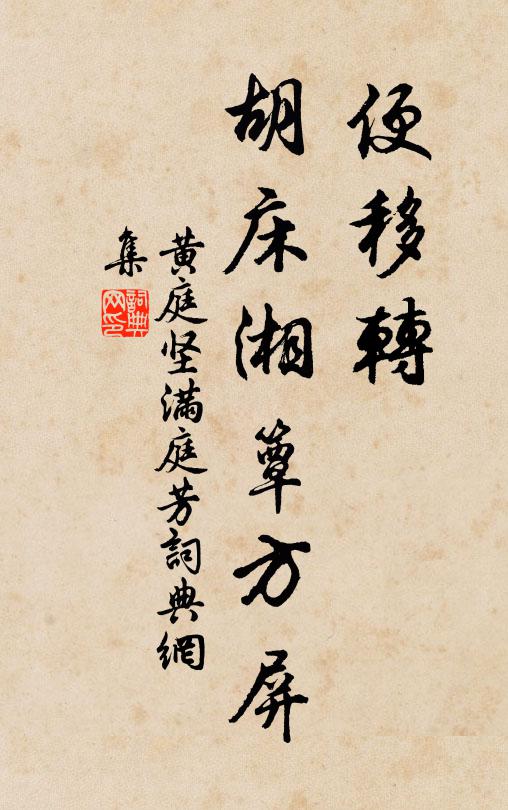 便移轉
胡床湘簟方屏
黄庭坚满庭芳詞典網
集
詞典网印